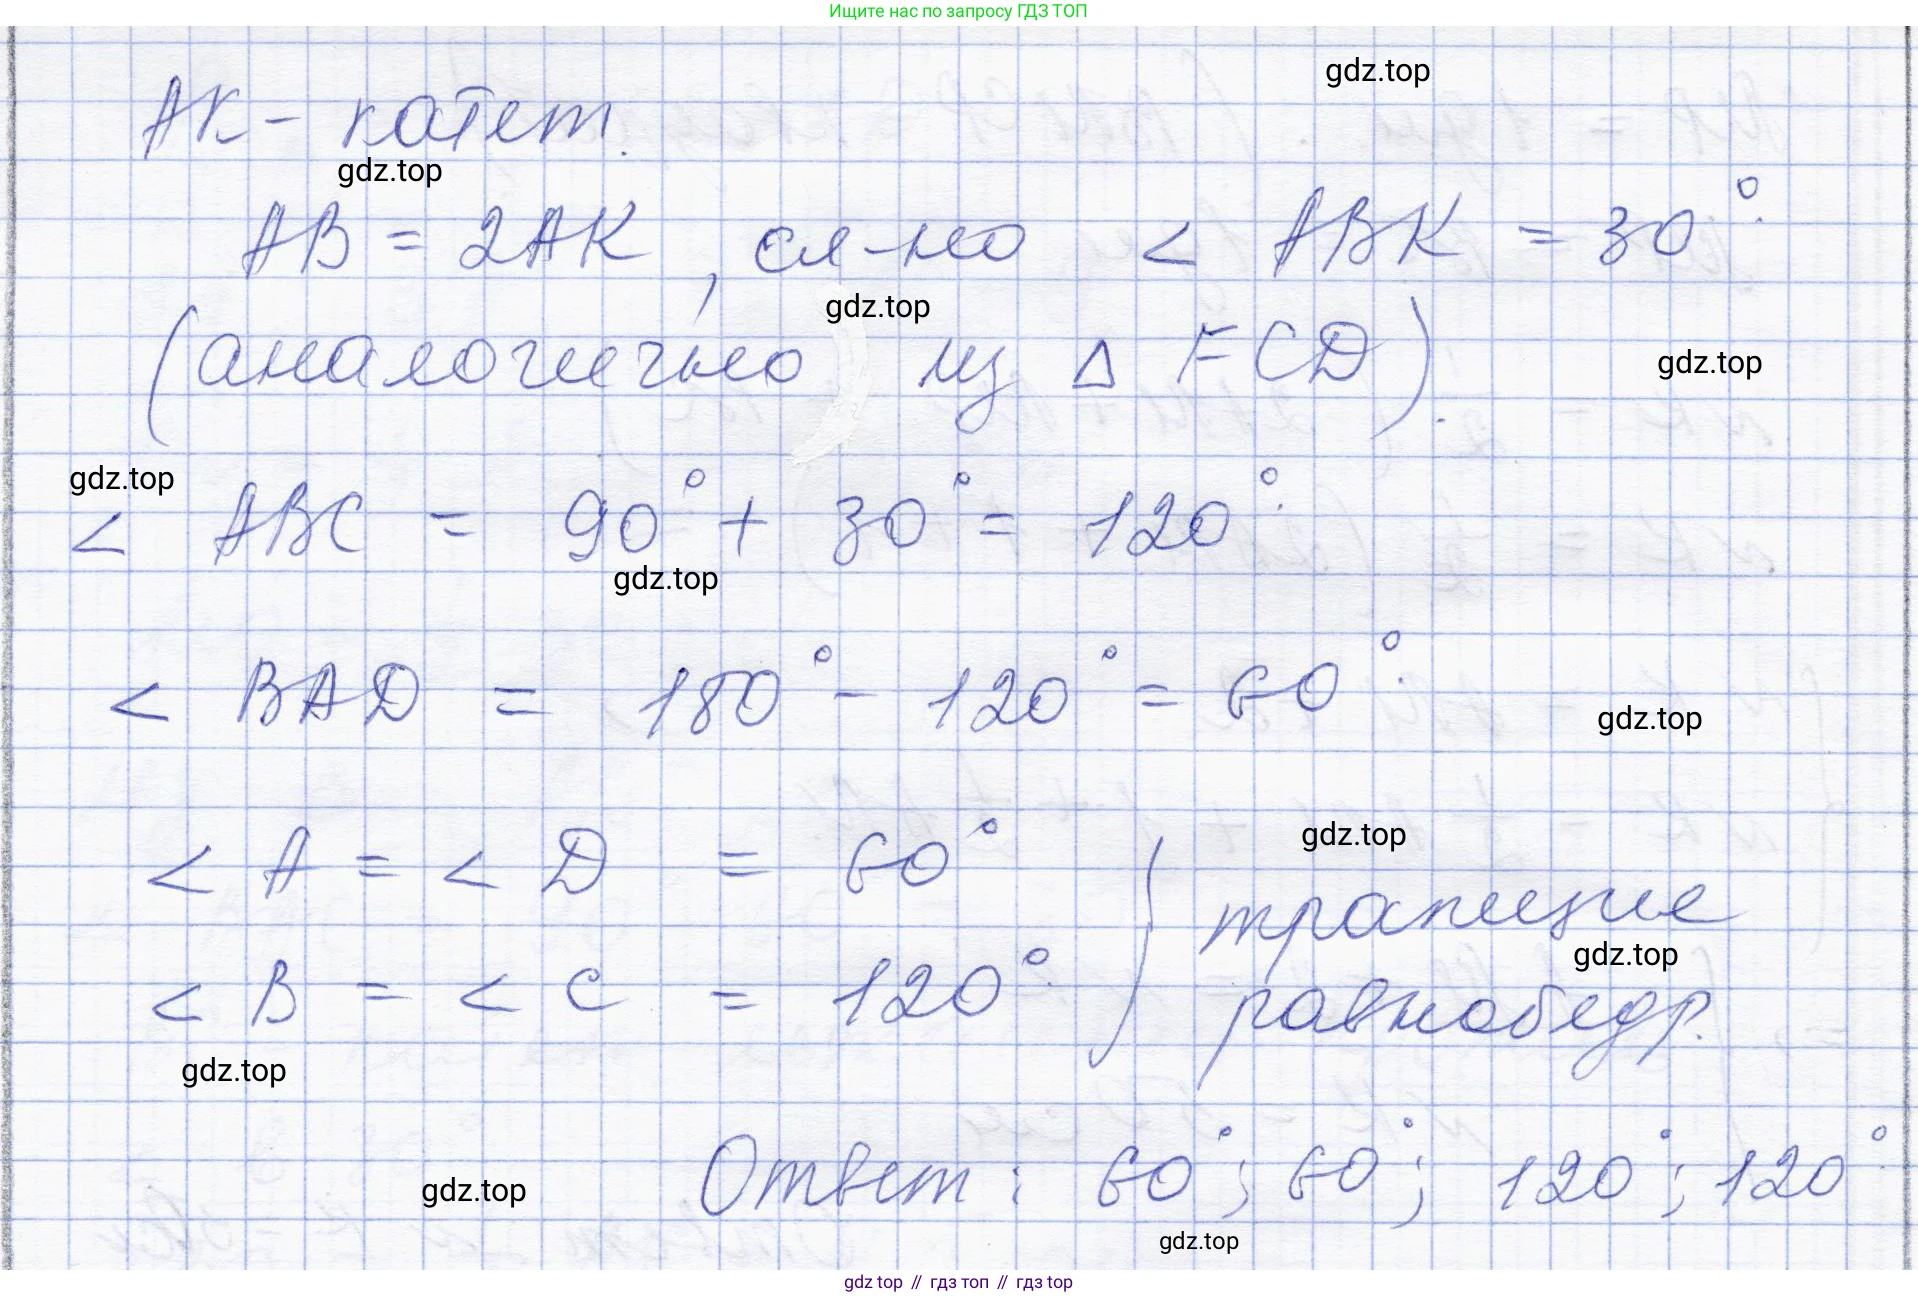 Ищите нас по запросу ГДЗ ТОП
gdz.top
АК - катет.
gdz.top
АВ = 2АК, сл-но < АВК = 30°.
gdz.top
(аналогично из Δ FCD).
gdz.top
gdz.top
< АВС = 90° + 30° = 120°.
gdz.top
< BAD = 180° - 120° = 60°.
gdz.top
gdz.top
< А = < D = 60° ) трапеция
gdz.top
< В = < С = 120°. равнобедр.
gdz.top
gdz.top
Ответ: 60°; 60°; 120°; 120°
gdz.top
gdz.top // гдз топ // гдз top